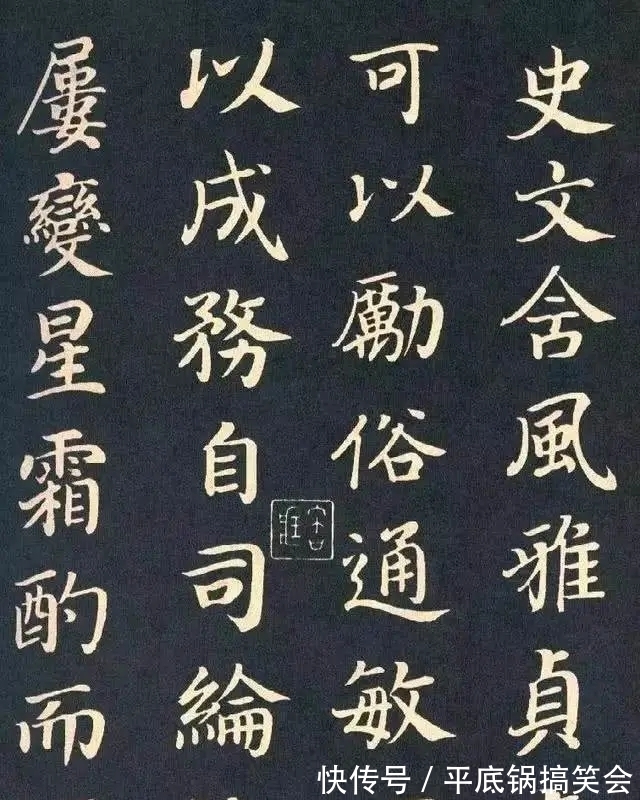 史文舍風雅貞
可以勵俗通敏
以成務自司綸
屢變星霜酌而
快传号 / 平底锅搞笑会